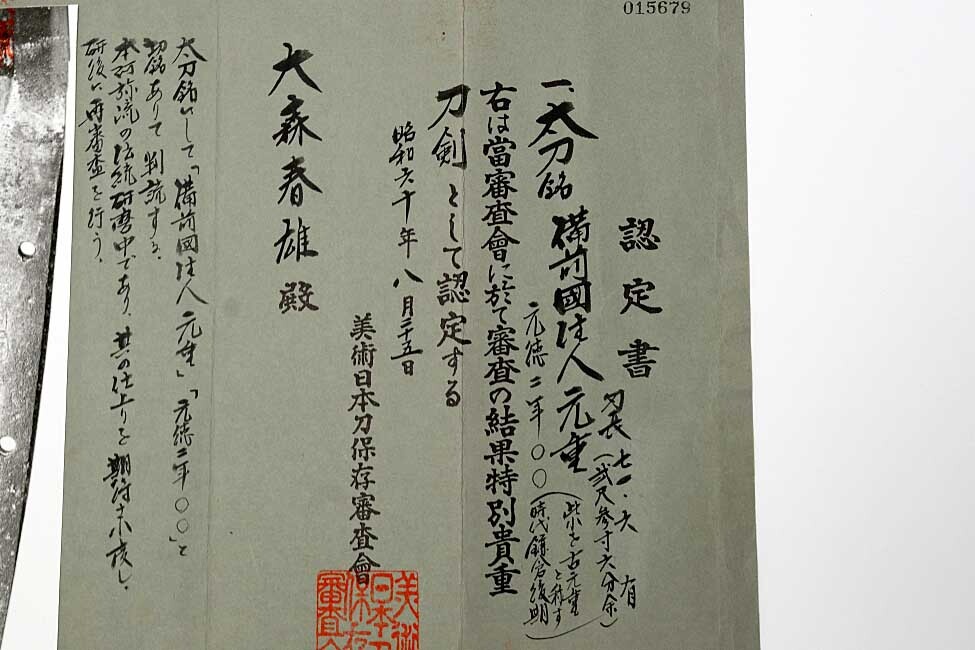 015679
認定書
一、太刀銘 備前國住人元重
刃長七一・六
有
(貳尺参寸六分余)
元徳二年〇〇
(時代鎌倉後期)
右は當審査會に於て審査の結果特別貴重
刀剣として認定する
昭和六十年八月二十五日
美術日本刀保存審査會
大森春雄殿
太刀銘にして「備前國住人元重」「元徳二年〇〇」と
切銘ありて判読する、
本阿弥流の伝統研磨中であり、其の仕上りを期待
研後に再審査を行う、
美術
日本刀
保存
審査